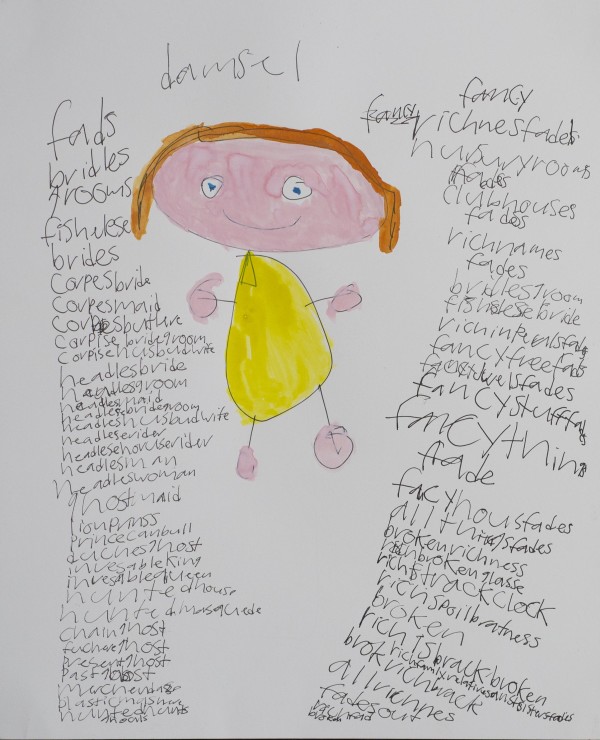 damsel
fads
bridles
grooms
fishelese
brides
corpesbride
corpesmaid
corpesbuthre
corpise bridegroom
corpisehusbudwite
headlesbride
headlesgroom
headlesmaid
headlesebridegroom
headleshusbudwite
headleserider
headlesehoruserider
headlesman
headleswoman
ghostmaid
lionprinss
princecanbull
duchesghost
invesableking
invesablequeen
huntedhouse
chainghost
fuchereghost
presentghost
pastghost
fancy
fancy
richnesfades
nursuryrooms
fades
clubhouses
fades
richnames
fades
bridlesgroom
fishelesebride
fancyfreefads
fancystufffads
fancything
fade
facyhousfades
allthingsfades
brokenrichness
richbrokenglasse
richtrackclock
richspoilbratness
broken
richisbrackbroken
brokrichback
allrichnes
fadesout